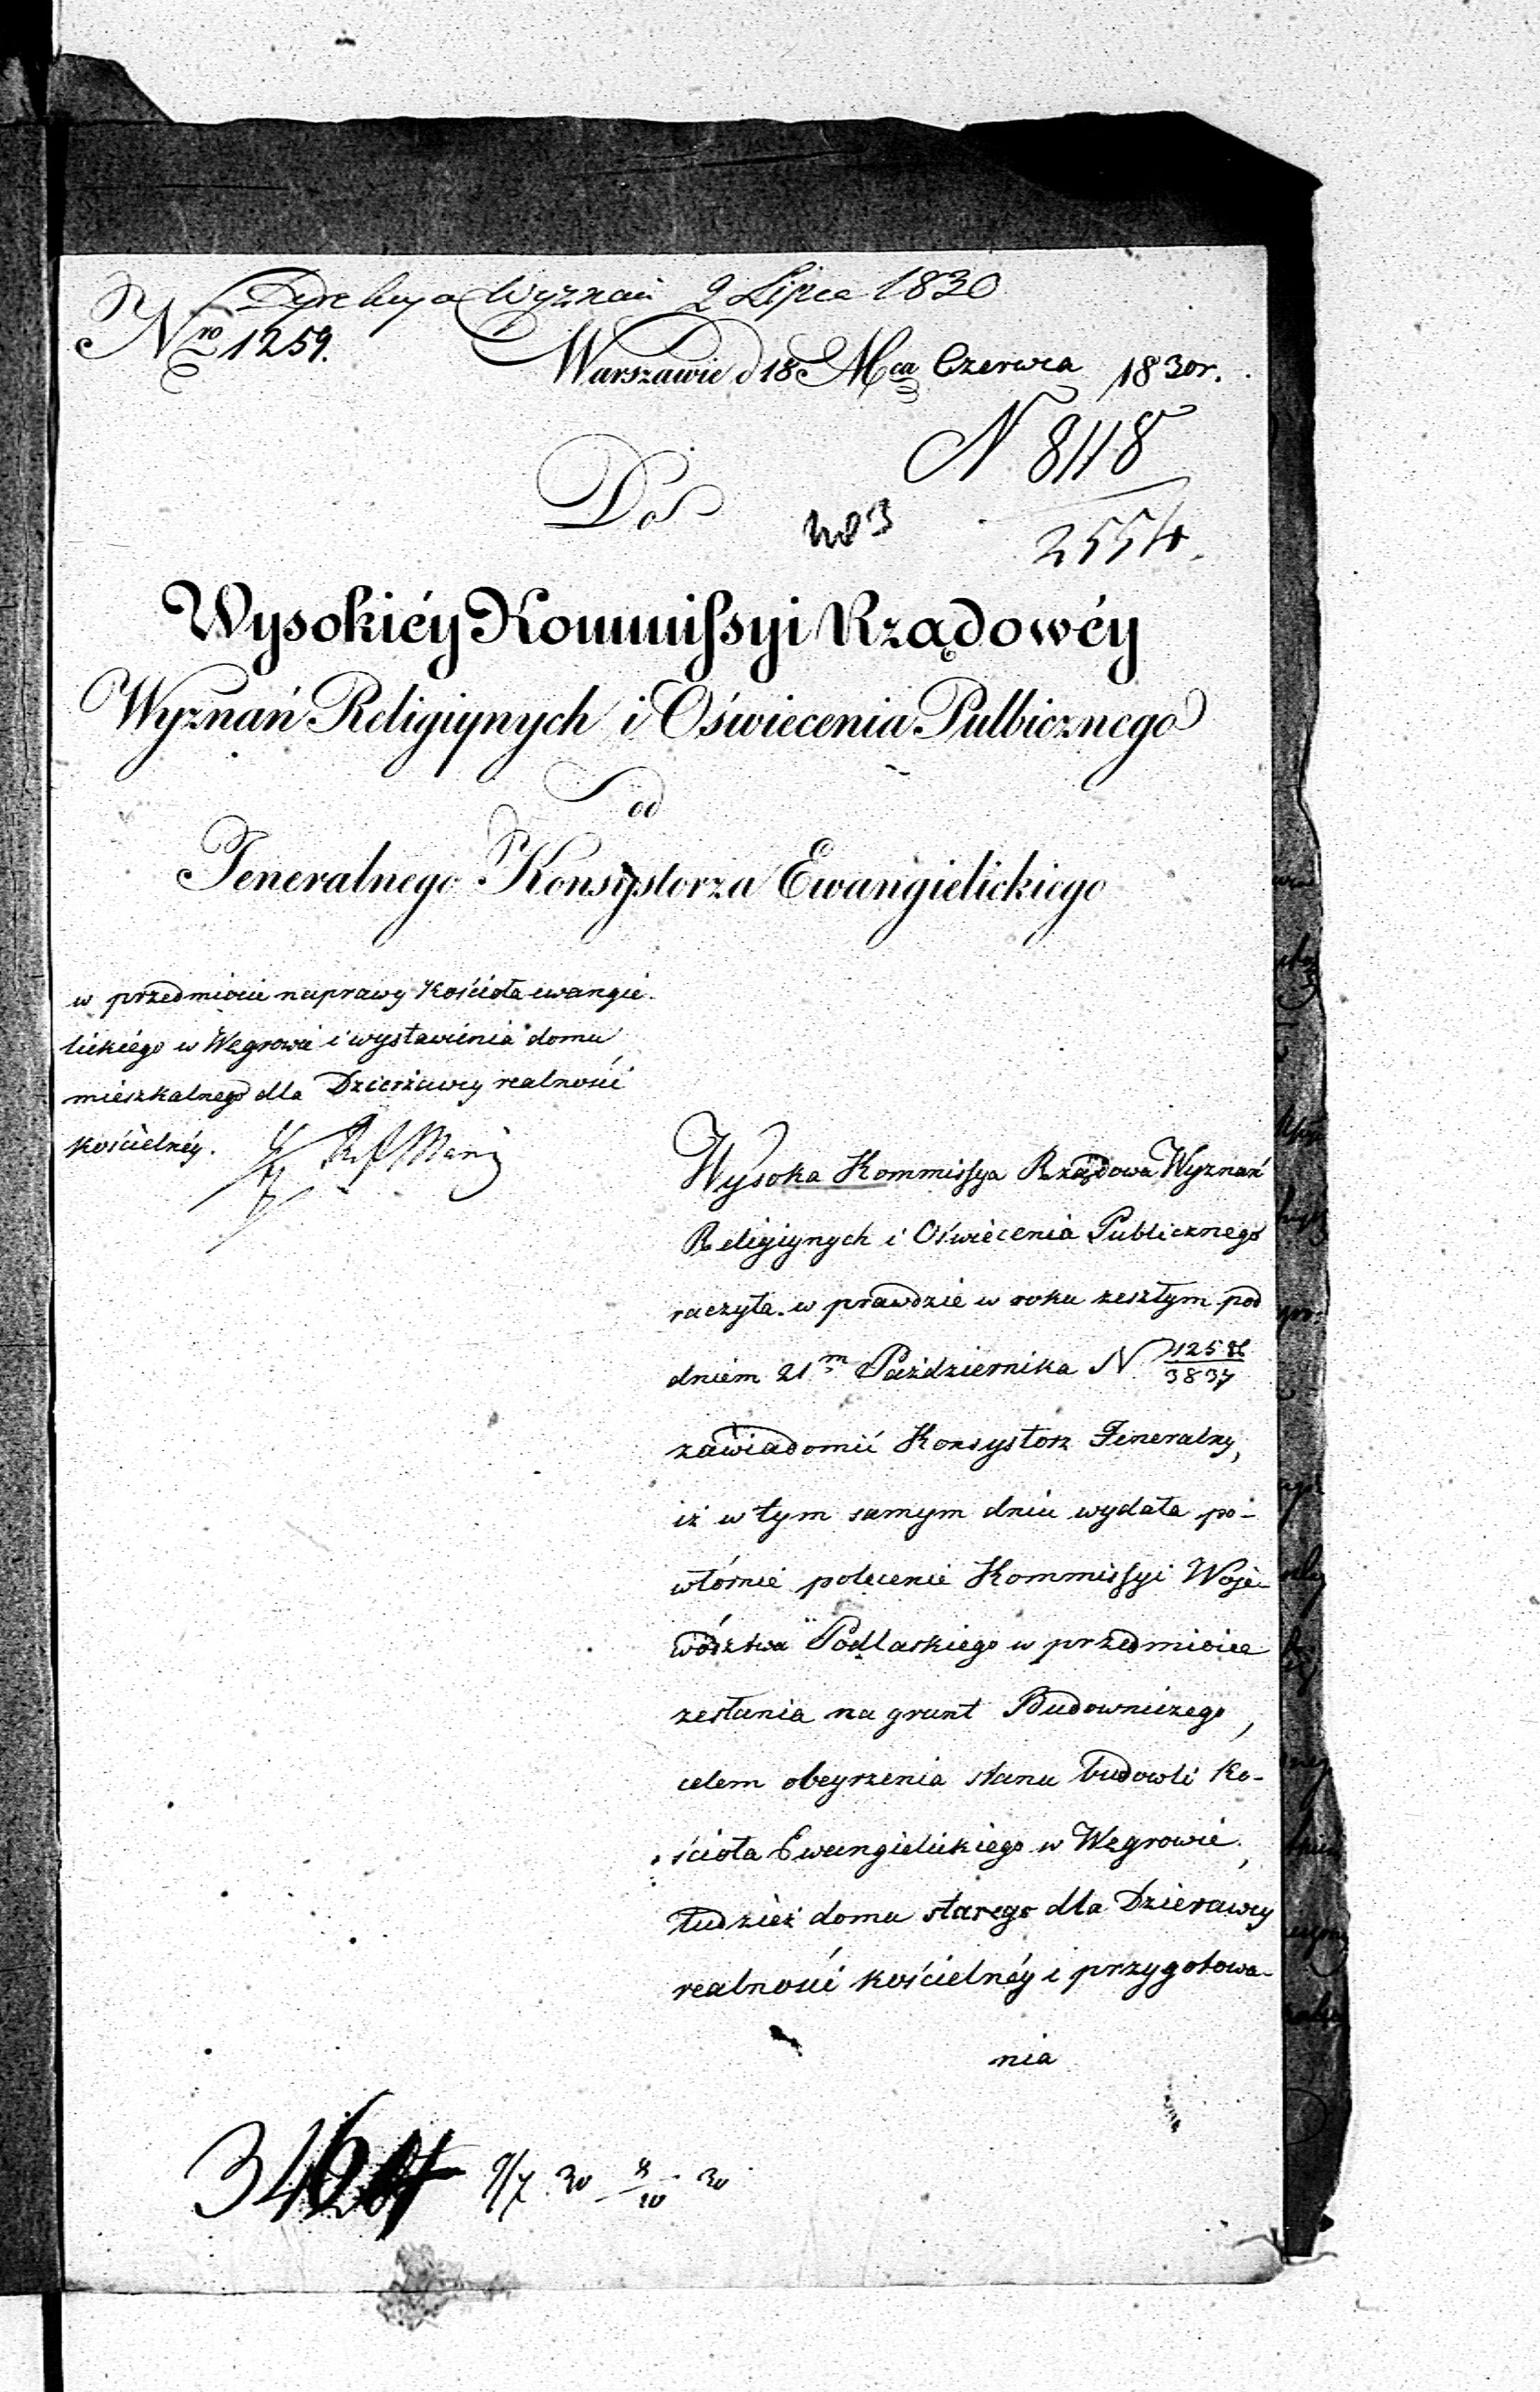 Dyrekcya Wyznań 2 Lipca 1830
Nro 1259.
Warszawie d 18 Mca Czerwca 1830r.
N 8118
2554.
Do
Wysokiéy Kommissyi Rządowéy
Wyznań Religiynych i Oświecenia Pulbicznego
od
Jeneralnego Konsystorza Ewangielickiego
w przedmiocie naprawy Kościoła ewangie-
lickiégo w Węgrowie i wystawienia domu
mieszkalnego dla Dzierżawcy realności
kościelnéy.
Wysoka Kommissya Rządowa Wyznań
Religiynych i Oświecenia Publicznego
raczyła w prawdzie w roku zeszłym pod
dniem 21m Października N 12586/3837
zawiadomić Konsystorz Jeneralny,
iż w tym samym dniu wydała po-
wtórnie polecenie Kommissyi Woje-
wództwa Podlaskiego w przedmiocie
zesłania na grunt Budowniczego,
celem obeyrzenia stanu budowli Ko-
ścioła Ewangielickiego w Węgrowie,
tudzież domu starego dla Dzierawcy
realności kościelnéy i przygotowa-
nia
9/7 30 8/10 30